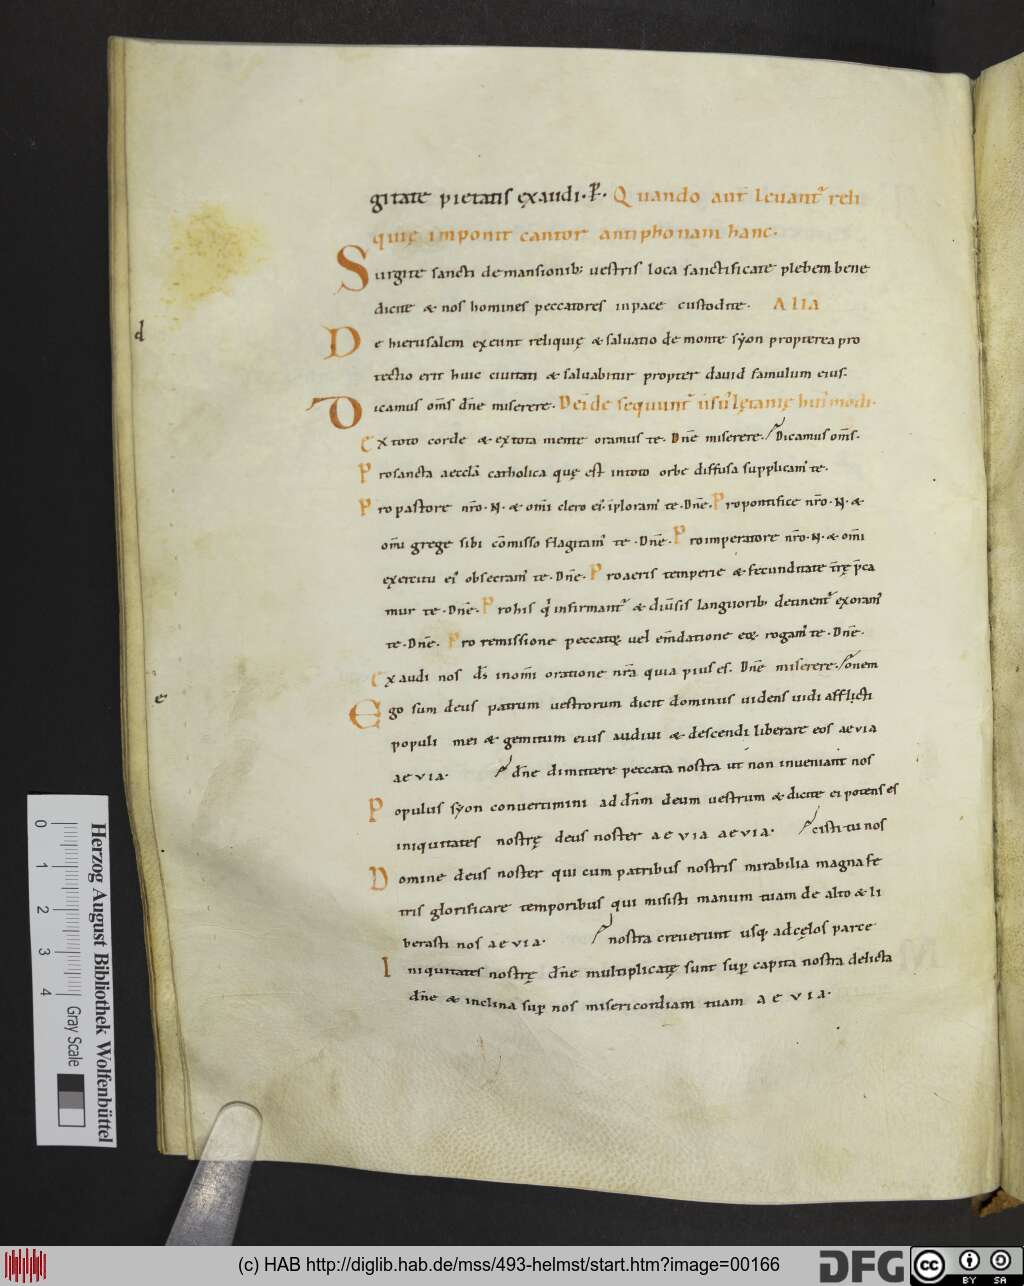 gitate pietatis exaudi. P̄. Quando aut̄ levant᷑ reli
quię imponit cantor antiphonam hanc.
Surgite sancti de mansionib; uestris loca sanctificate plebem bene
dicite & nos homines peccatores in pace custodite. Alia
d
De hierusalem exeunt reliquię & saluatio de monte syon propterea pro
tectio erit huic ciuitati & saluabitur propter dauid famulum eius.
Dicamus om̄s dn̄e miserere. Deide sequunt᷑ letanię
Ex toto corde & ex tota mente oramus te. Dn̄e miserere. Dicamus om̄s.
Pro sancta aecclā catholica quę est in toto orbe diffusa supplicam᷒ te.
Pro pastore nr̄o .N. & om̄i clero ei᷒ iploram᷒ te. Dn̄e. Pro pontifice nr̄o .N. &
om̄i grege sibi cōmisso flagitam᷒ te. Dn̄e. Pro imperatore nr̄o .N. & om̄i
exercitu ei᷒ obsecram᷒ te. Dn̄e. Pro aeris temperie & fecunditate p̄ca
mur te. Dn̄e. Pro his q infirmant᷑ & languorib; detinent᷑ exoram᷒
te. Dn̄e. Pro remissione peccatoꝝ uel em̄datione eoꝝ rogam᷒ te. Dn̄e.
Exaudi nos d̄s in om̄i oratione nr̄a quia pius es. Dn̄e miserere. onem
e
Ego sum deus patrum uestrorum dicit dominus uidens uidi afflicti
populi mei & gemitum eius audiui & descendi liberare eos aevia
aevia. dn̄e dimittere peccata nostra ut non inueniant nos
Populus syon conuertimini ad dn̄m deum uestrum & dicite ei potens es
iniquitates nostrę deus noster aevia aevia. cisti tu nos
Domine deus noster qui cum patribus nostris mirabilia magna fe
tris glorificare temporibus qui misisti manum tuam de alto & li
berasti nos aevia. nostra creuerunt usq; ad cęlos parce
Iniquitates nostrę dn̄e multiplicatę sunt sup̱ capita nostra delicta
dn̄e & inclina sup̱ nos misericordiam tuam aevia.
Herzog August Bibliothek Wolfenbüttel
0 1 2 3 4
Gray Scale
(c) HAB http://diglib.hab.de/mss/493-helmst/start.htm?image=00166
DFG
cc BY SA